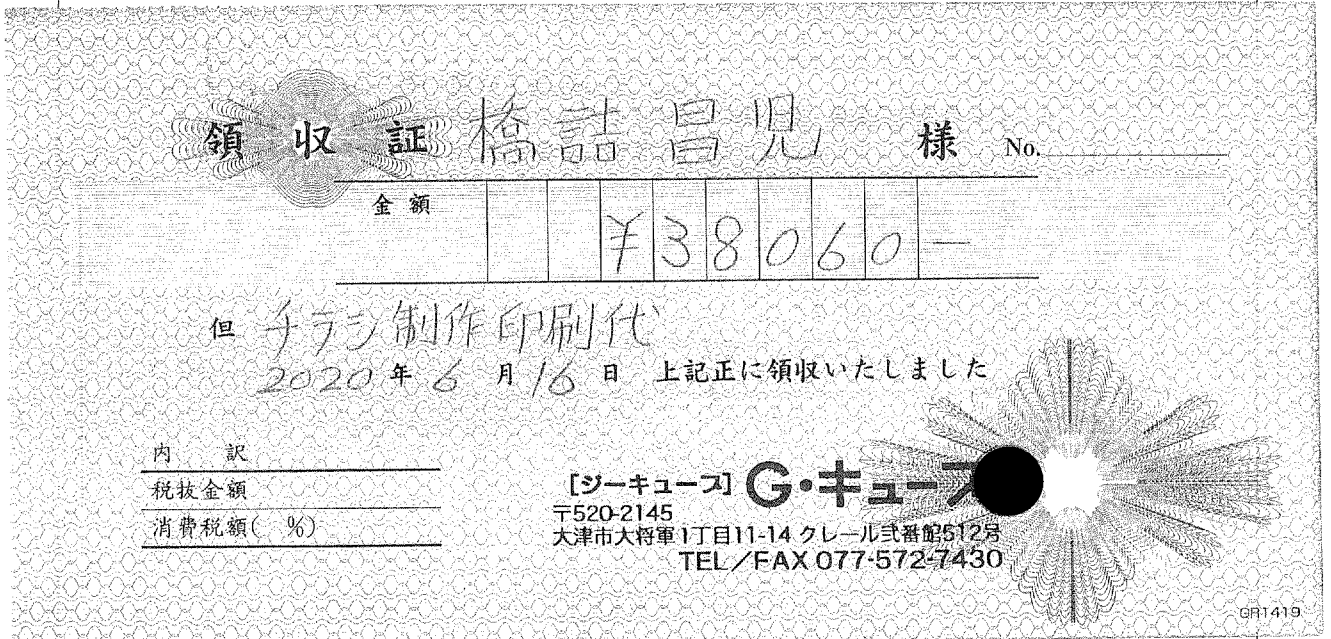 領収証 橋詰昌児 様 No.
金額 ¥38060-
但 チラシ制作印刷代
2020年6月16日 上記正に領収いたしました
内訳
税抜金額
消費税額( %)
[ジーキューブ] G・キューブ
〒520-2145
大津市大将軍1丁目11-14 クレール弐番館512号
TEL/FAX 077-572-7430
GR1419